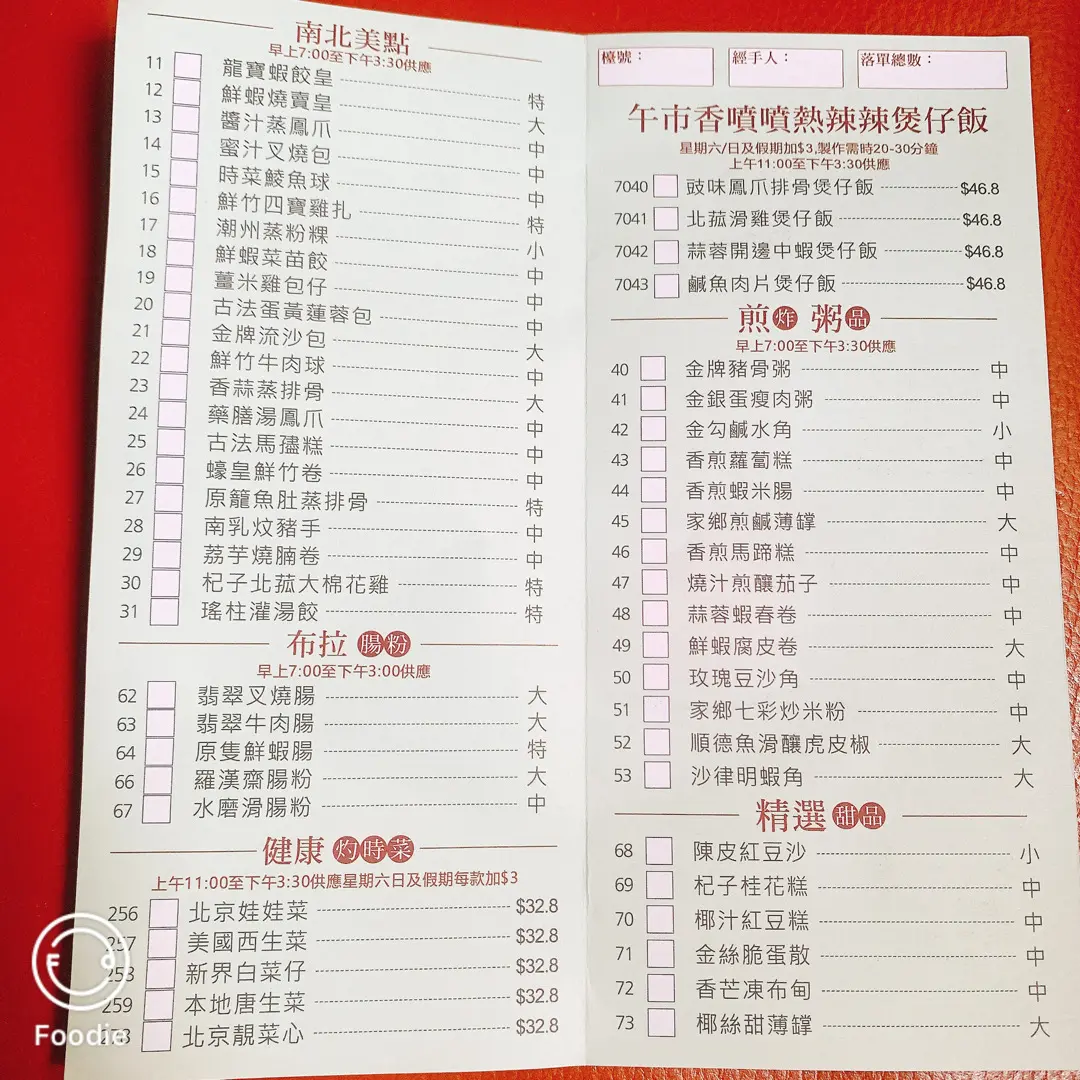 南北美點
早上7:00至下午3:30供應
11 龍寶蝦餃皇 特
12 鮮蝦燒賣皇 大
13 醬汁蒸鳳爪 中
14 蜜汁叉燒包 中
15 時菜鯪魚球 中
16 鮮竹四寶雞扎 特
17 潮州蒸粉粿 小
18 鮮蝦菜苗餃 中
19 薑米雞包仔 中
20 古法蛋黃蓮蓉包 中
21 金牌流沙包 大
22 鮮竹牛肉球 中
23 香蒜蒸排骨 大
24 藥膳湯鳳爪 中
25 古法馬孻糕 中
26 蠔皇鮮竹卷 中
27 原籠魚肚蒸排骨 特
28 南乳炆豬手 中
29 荔芋燒腩卷 中
30 杞子北菰大棉花雞 特
31 瑤柱灌湯餃 特
布拉腸粉
早上7:00至下午3:00供應
62 翡翠叉燒腸 大
63 翡翠牛肉腸 大
64 原隻鮮蝦腸 特
66 羅漢齋腸粉 大
67 水磨滑腸粉 中
健康灼時菜
上午11:00至下午3:30供應星期六日及假期每款加$3
256 北京娃娃菜 $32.8
257 美國西生菜 $32.8
新界白菜仔 $32.8
259 本地唐生菜 $32.8
北京靚菜心 $32.8
Foodie
檯號：
經手人：
落單總數：
午市香噴噴熱辣辣煲仔飯
星期六/日及假期加$3,製作需時20-30分鐘
上午11:00至下午3:30供應
7040 豉味鳳爪排骨煲仔飯 $46.8
7041 北菰滑雞煲仔飯 $46.8
7042 蒜蓉開邊中蝦煲仔飯 $46.8
7043 鹹魚肉片煲仔飯 $46.8
煎炸粥品
早上7:00至下午3:30供應
40 金牌豬骨粥 中
41 金銀蛋瘦肉粥 中
42 金勾鹹水角 小
43 香煎蘿蔔糕 中
44 香煎蝦米腸 中
45 家鄉煎鹹薄罉 大
46 香煎馬蹄糕 中
47 燒汁煎釀茄子 中
48 蒜蓉蝦春卷 中
49 鮮蝦腐皮卷 大
50 玫瑰豆沙角 中
51 家鄉七彩炒米粉 中
52 順德魚滑釀虎皮椒 大
53 沙律明蝦角 大
精選甜品
68 陳皮紅豆沙 小
69 杞子桂花糕 中
70 椰汁紅豆糕 中
71 金絲脆蛋散 中
72 香芒凍布甸 中
73 椰絲甜薄罉 大